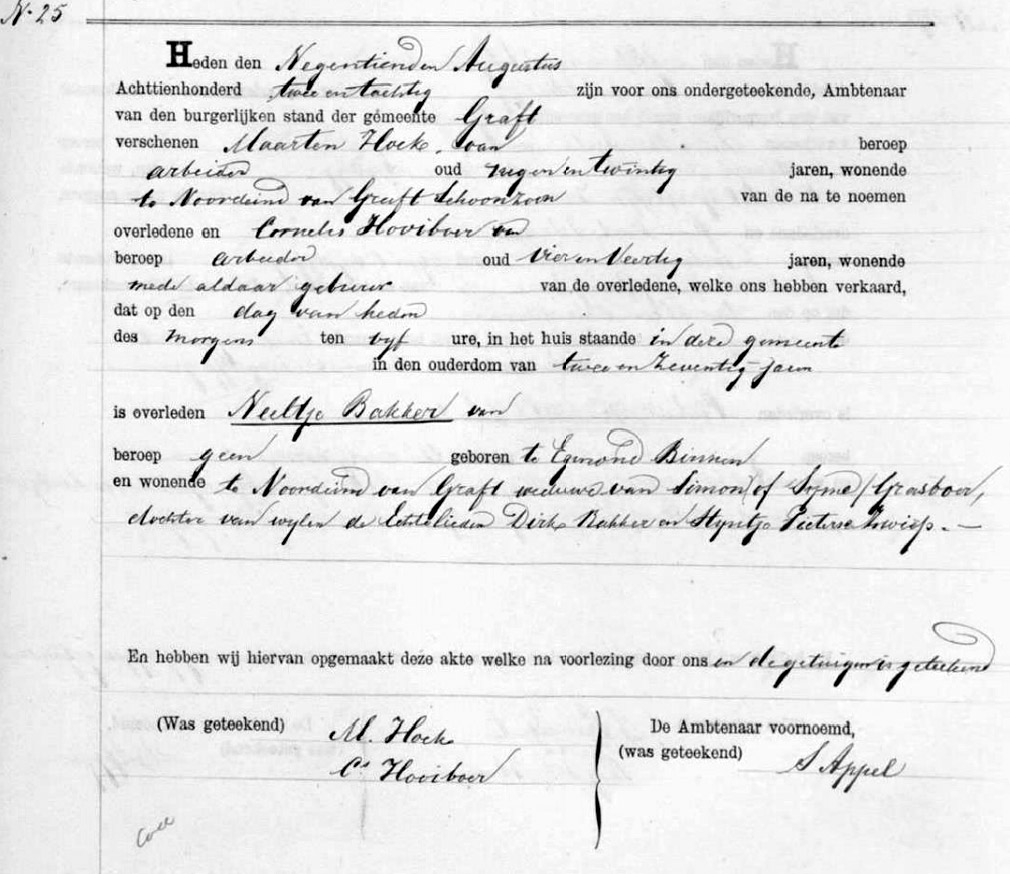 N. 25
Heden den Negentienden Augustus
Achttienhonderd twee en tachtig zijn voor ons ondergeteekende, Ambtenaar
van den burgerlijken stand der gemeente Graft
verschenen Maarten Hoek van beroep
arbeider oud negen en twintig jaren, wonende
te Noordeind van Graft Schoonzoon van de na te noemen
overledene en Cornelis Hooiboer van
beroep arbeider oud vier en veertig jaren, wonende
mede aldaar gebuur van de overledene, welke ons hebben verkaard,
dat op den dag van heden
des morgens ten vyf ure, in het huis staande in deze gemeente
in den ouderdom van twee en zeventig jaren
is overleden Neeltje Bakker van
beroep geen geboren te Egmond Binnen
en wonende te Noordeind van Graft weduwe van Simon (of Syme) Grasboer,
dochter van wylen de Echtelieden Dirk Bakker en Styntje Pieterse Zwiep. —
En hebben wij hiervan opgemaakt deze akte welke na voorlezing door ons en de getuigen is geteekend
(Was geteekend) M. Hoek
Cs Hooiboer
De Ambtenaar voornoemd,
(was geteekend) S Appel